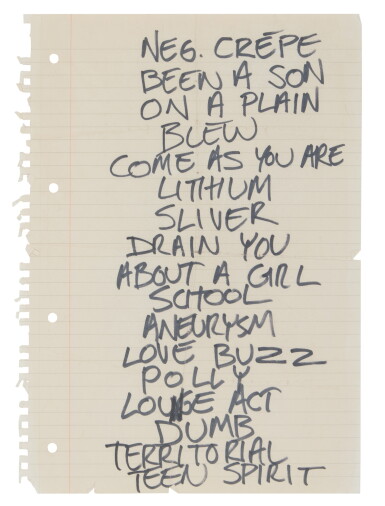 NEG. CRÊPE
BEEN A SON
ON A PLAIN
BLEW
COME AS YOU ARE
LITHIUM
SLIVER
DRAIN YOU
ABOUT A GIRL
SCHOOL
ANEURYSM
LOVE BUZZ
POLLY
LOUNGE ACT
DUMB
TERRITORIAL
TEEN SPIRIT